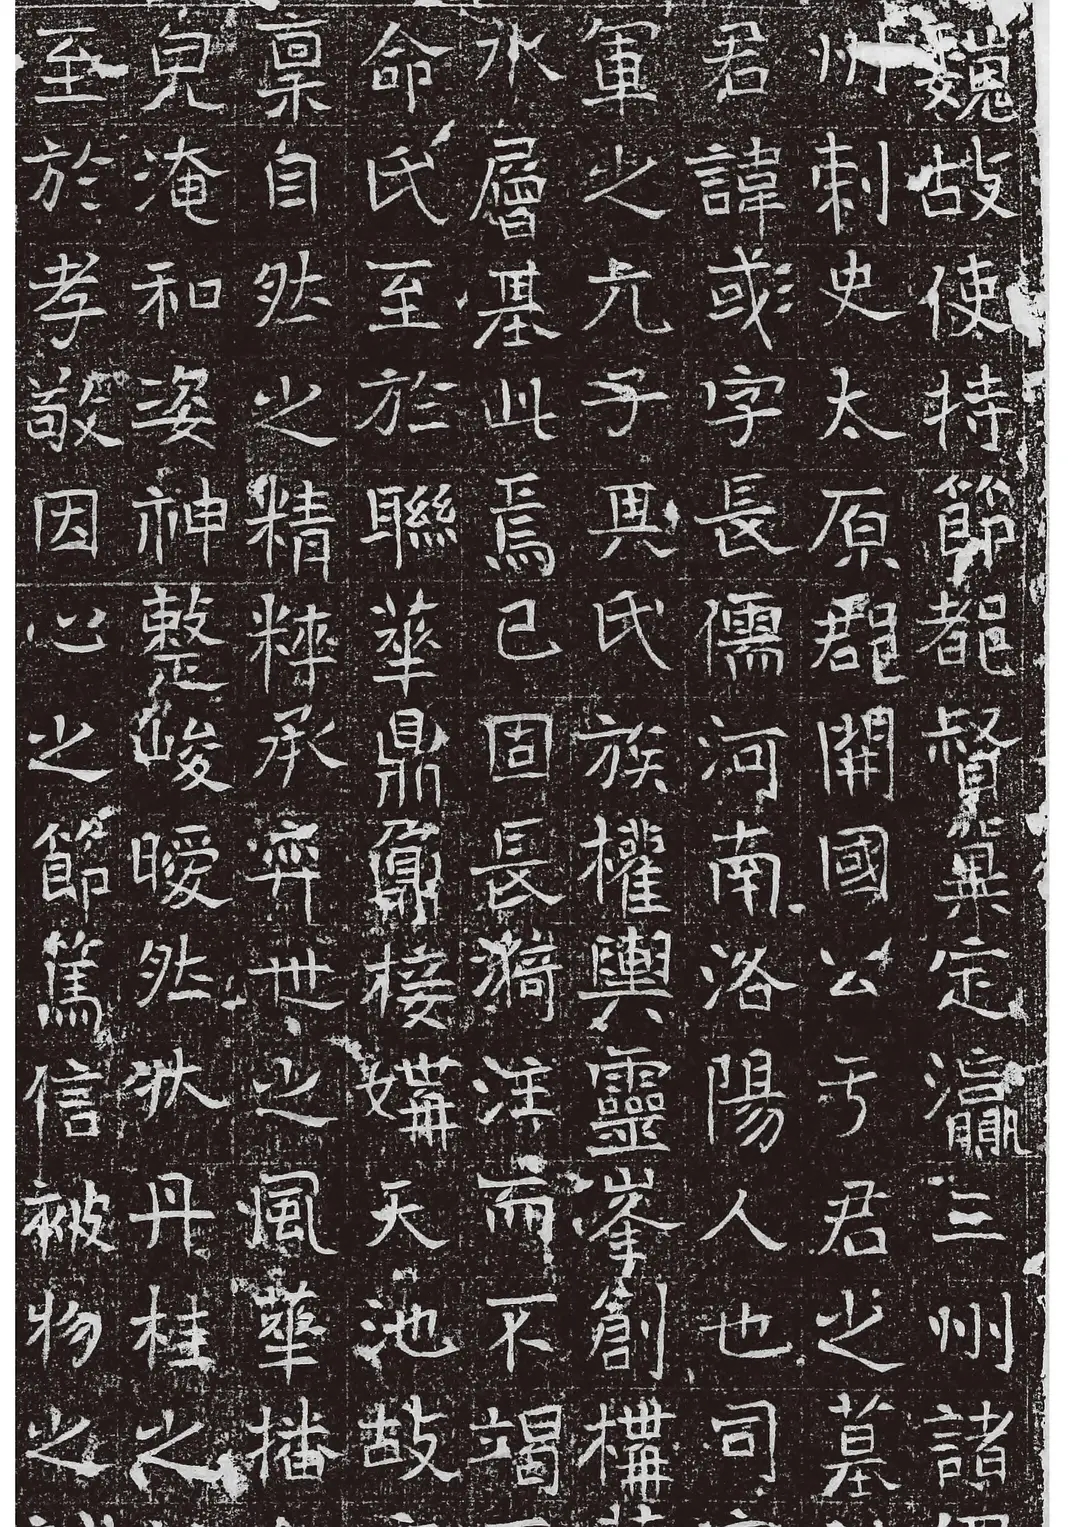 魏故使持節都督冀定瀛三州諸
州刺史太原郡開國公于君之墓
君諱彧字長儒河南洛陽人也司
軍之元子其氏族權輿靈峯創構
水層基此焉已固長漪注而不竭
命氏至於聯華鼎鼐接媾天池故
稟自然之精粹承弈世之風華播
皃淹和姿神整峻曖然狀丹桂之
至於孝敬因心之節篤信被物之